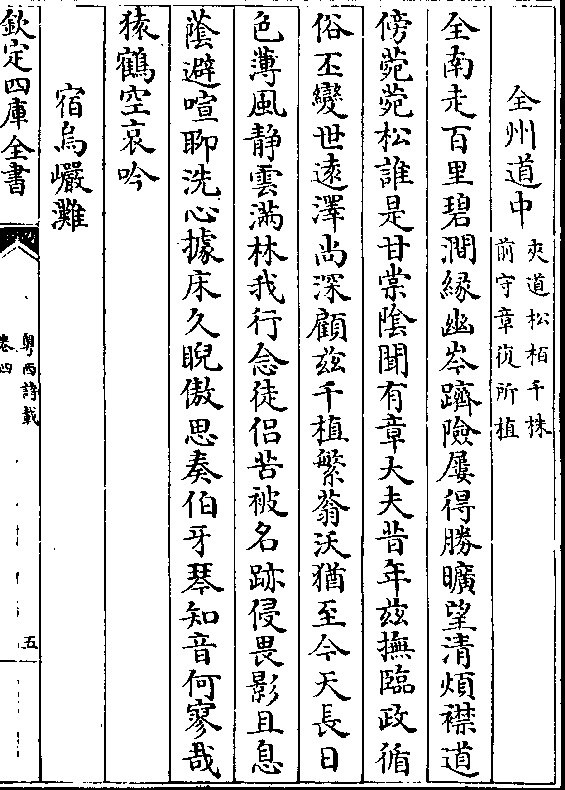 全州道中
夾道松栢千株
前守章復所植
全南走百里碧澗緣幽岑躋險屢得勝曠望清煩襟道
傍菀菀松誰是甘棠陰聞有章大夫昔年兹撫臨政循
俗丕變世逺澤尚深顧兹千植繁蓊沃猶至今天長日
色薄風静雲滿林我行念徒侣苦被名跡侵畏影且息
蔭避喧聊洗心據床久睨傲思奏伯牙琴知音何寥哉
猿鶴空哀吟
宿烏巖灘
欽定四庫全書
粤西詩載
卷四
五